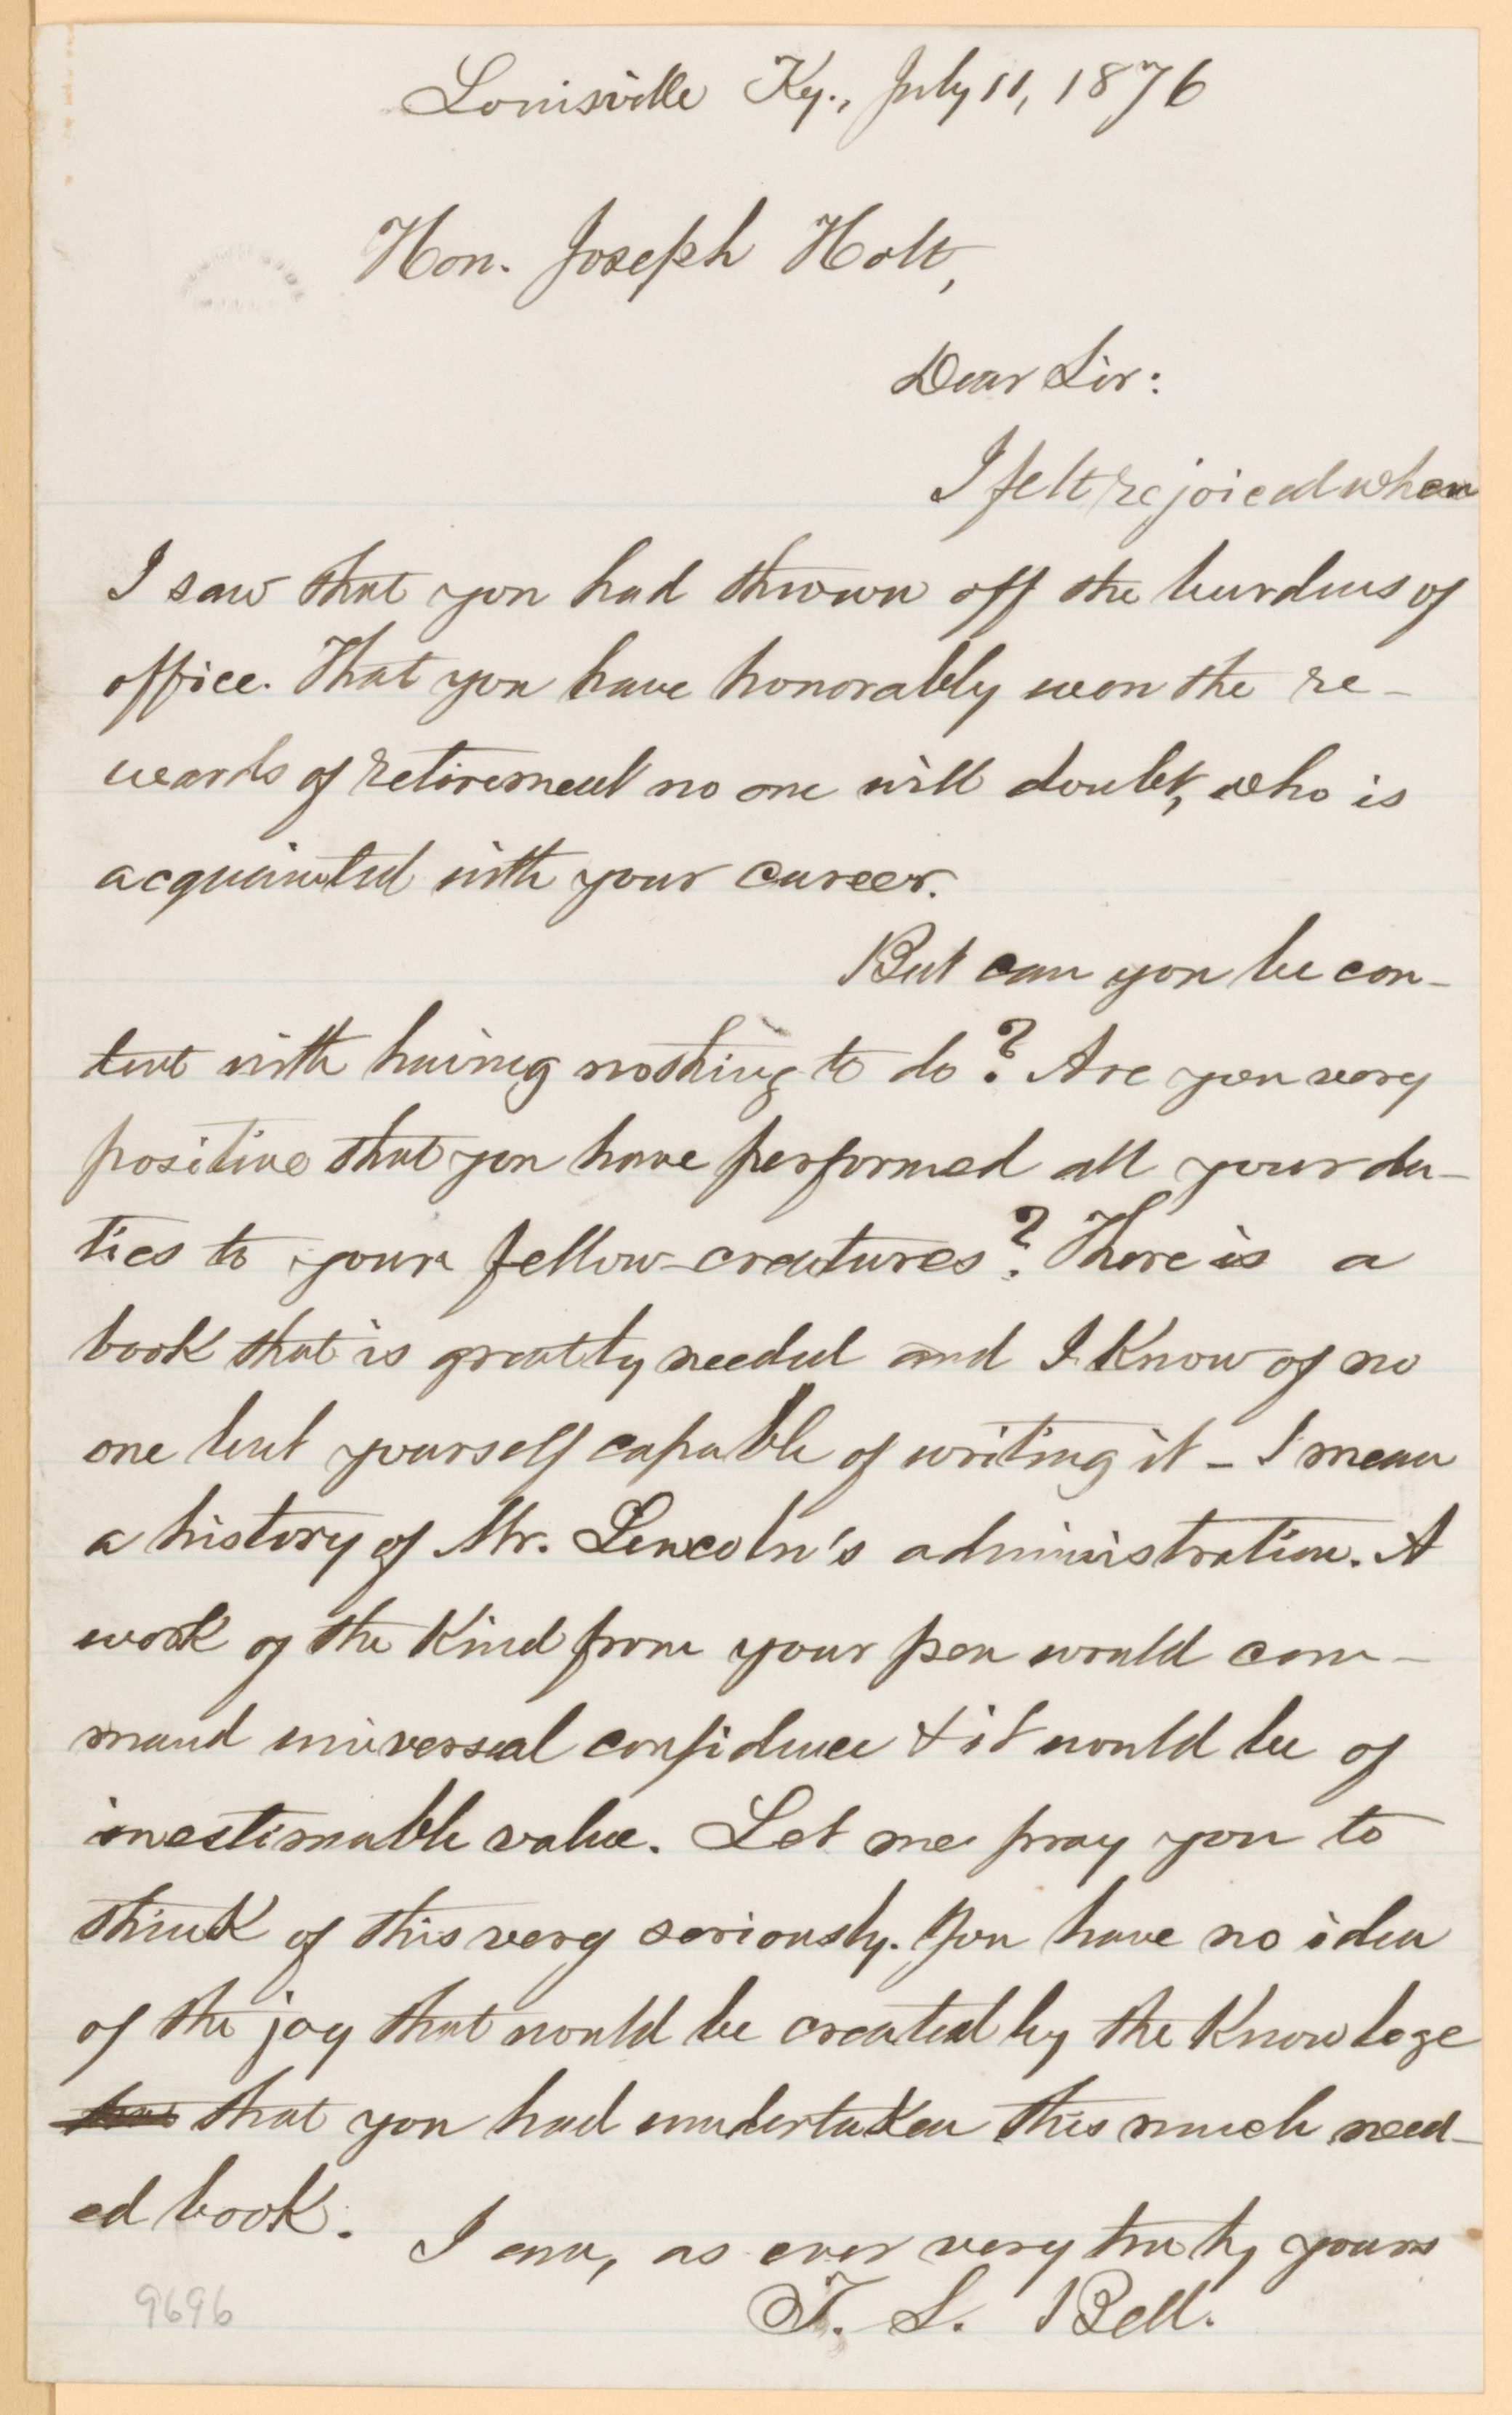 Louisville Ky., July 11, 1876
Hon. Joseph Holt,
Dear Sir:
I felt rejoiced when
I saw that you had thrown off the burdens of
office. That you have honorably won the re-
wards of retirement no one will doubt, who is
acquainted with your career.
But can you be con-
tent with having nothing to do? Are you very
positive that you have performed all your du-
ties to your fellow-creatures? There is a
book that is greatly needed and I Know of no
one but yourself capable of writing it - I mean
a history of Mr. Lincoln's administration. A
work of the Kind from your pen would com-
mand universal confidence & it would be of
inestimable value. Let me pray you to
think of this very seriously. You have no idea
of the joy that would be created by the Knowlege
that you had undertaken this much need-
ed book.
I am, as ever very truly yours
T. S. Bell.
9696